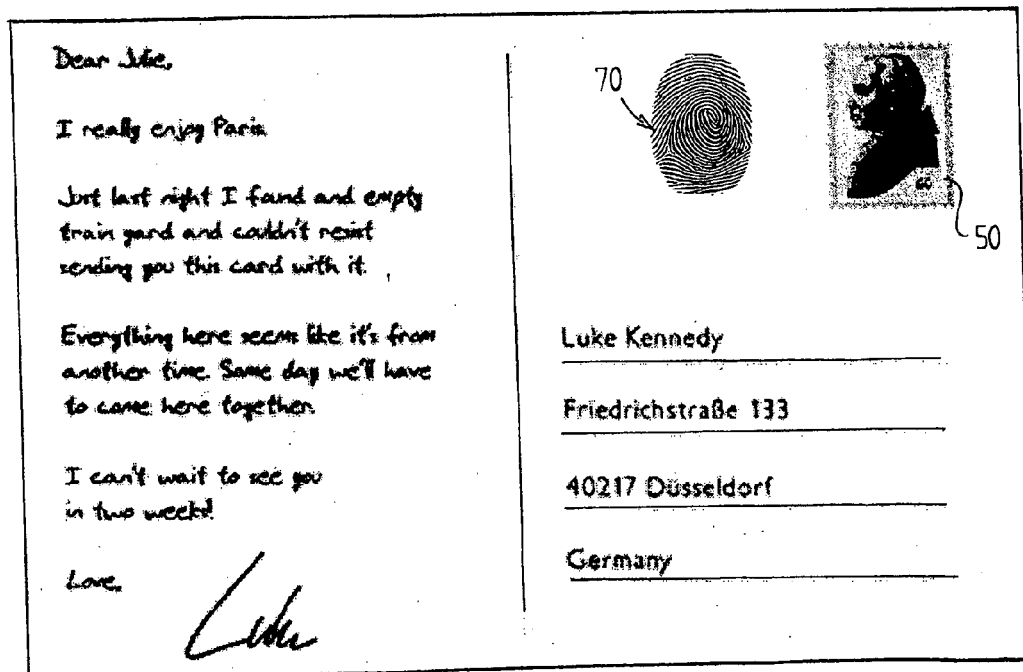 Dear Julie,
I really enjoy Paris.
Just last night I found and empty
train yard and couldn't resist
sending you this card with it.
Everything here seems like it's from
another time. Some day we'll have
to come here together.
I can't wait to see you
in two weeks!
Love,
Luke
70
50
Luke Kennedy
Friedrichstraße 133
40217 Düsseldorf
Germany